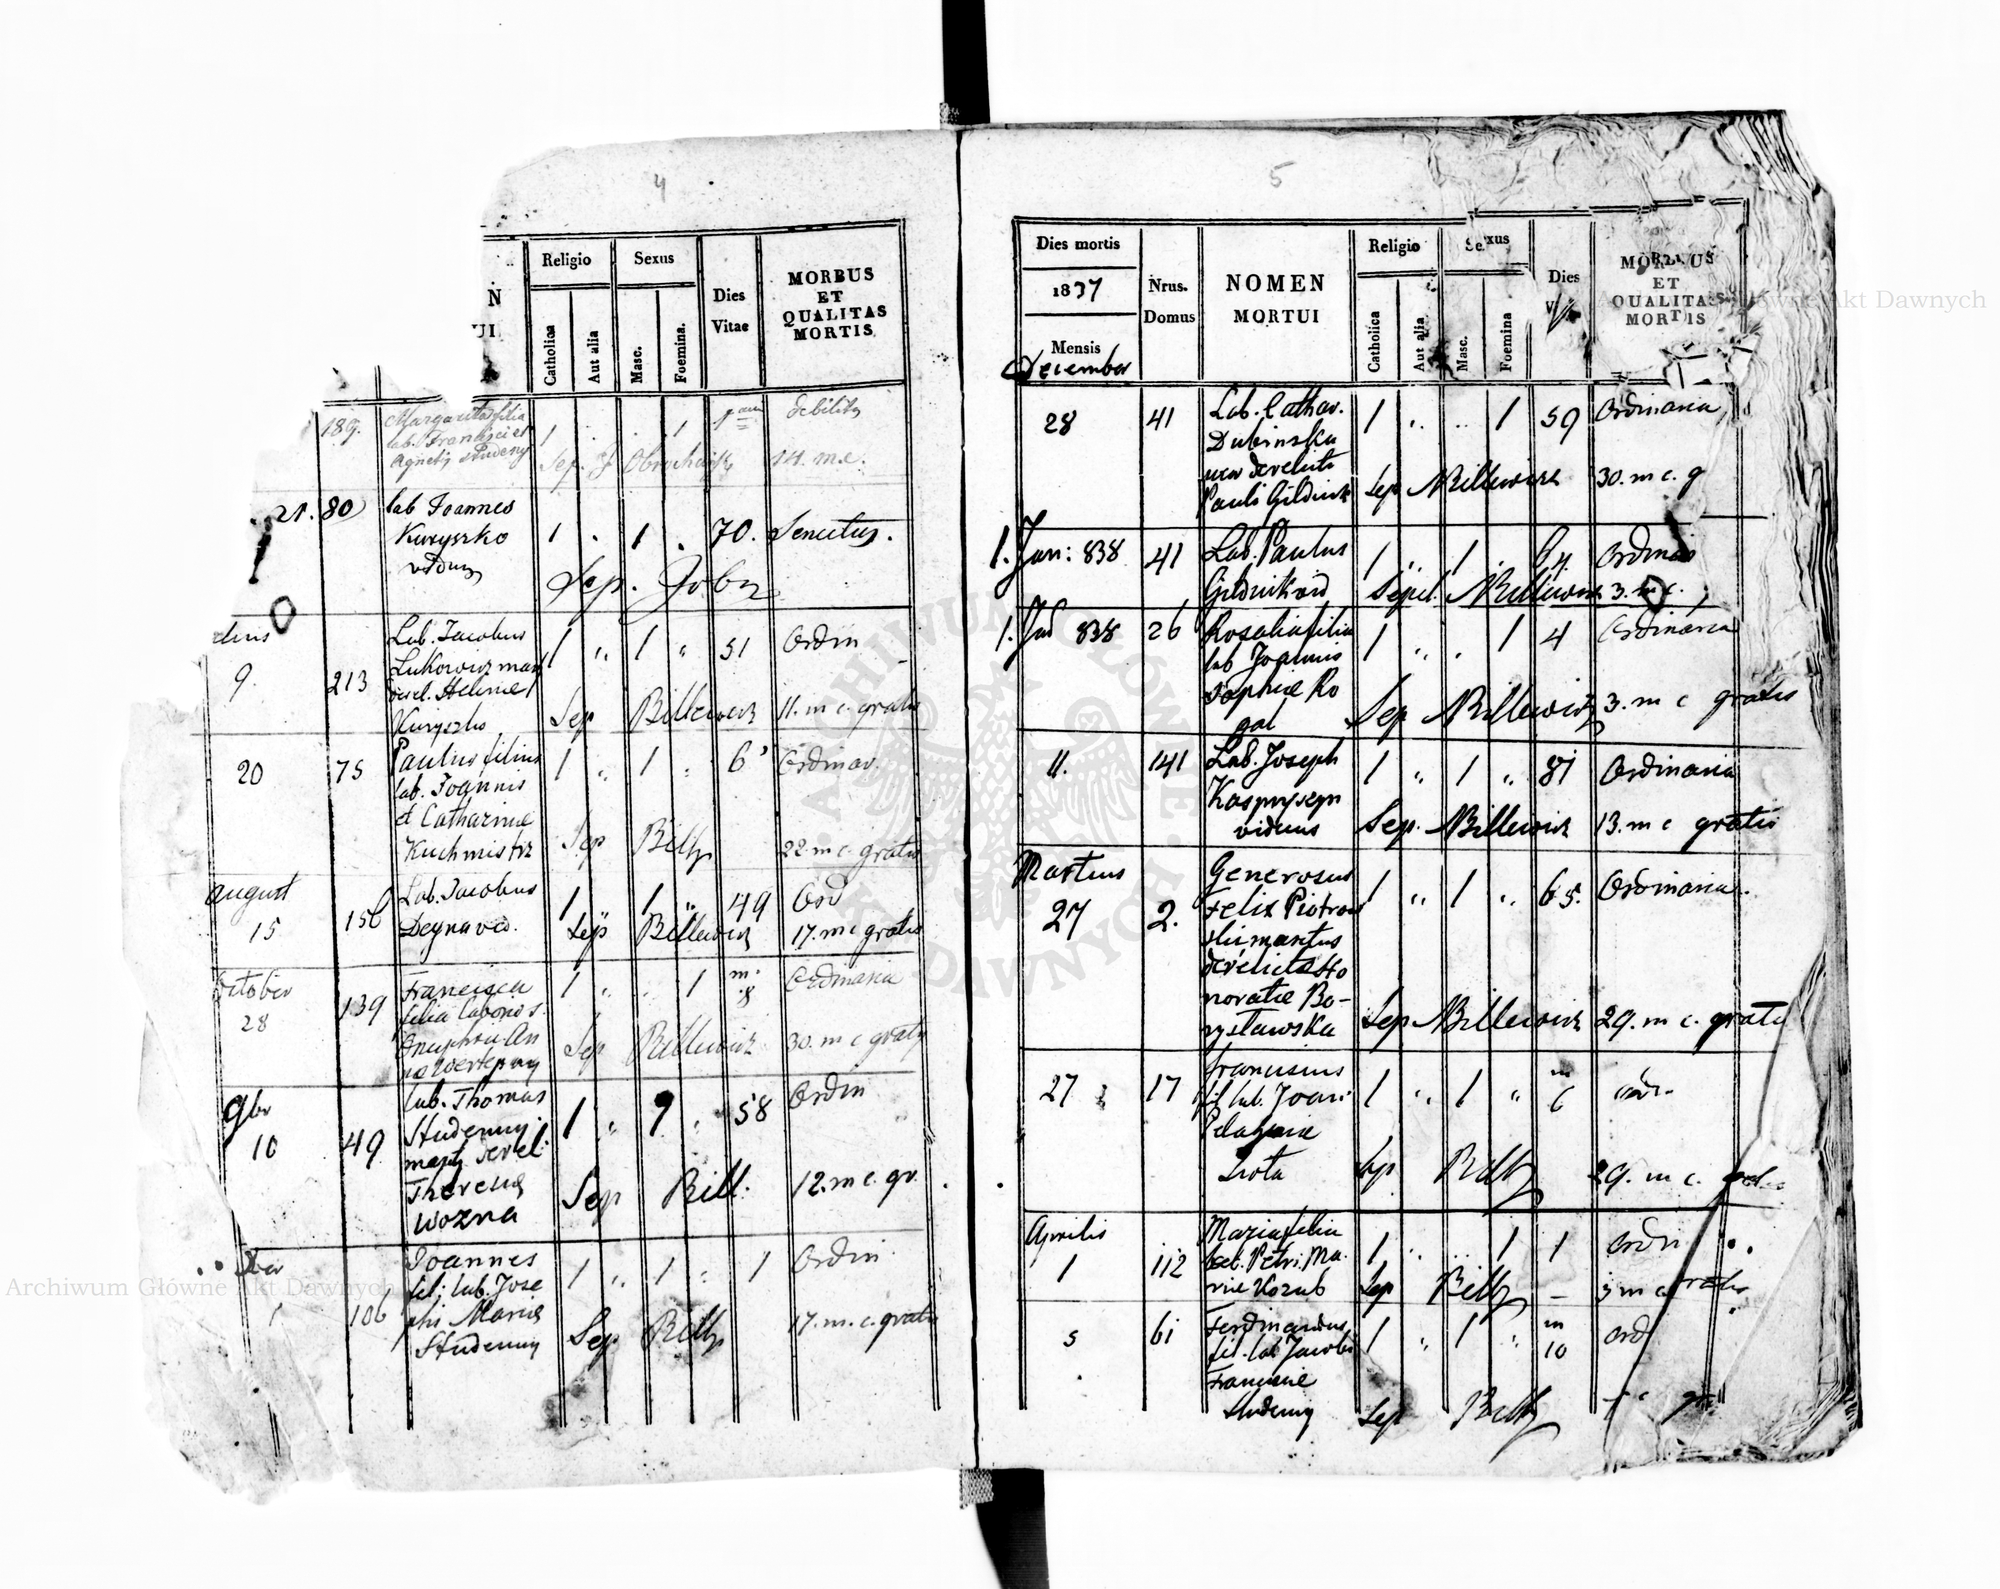 4
N
UI.
Religio
Sexus
Catholica
Aut alia
Masc.
Foemina.
Dies
Vitae
MORBUS
ET
QUALITAS
MORTIS
189. Margaritha filia 1 1 debilit.
lab. Francisci et
Agnetis Studeny Sep. 14. m.c.
21. 80 lab Joannes
Kuryszko 1 . 1 . 70. Senectus.
viduus
Sep.
9. 213 Lab. Jacobus 1 " 1 " 51 Ordin
Lukowicz
derel. Helenae
Kuryszko Sep Billewicz 11. m c. gratis
20 75 Paulus filius 1 " 1 " 6 Ordinar.
lab. Joannis
et Catharinae
Kuchmistrz Sep Bill 22. m c. gratis
August
15 156 Lab. Jacobus 1 1 " 49 Ord
Deyna Sep Billewicz 17. m c gratis
October
28 139 Francisca 1 " . 1 m. 8 Ordinaria
filia laborios.
Onuphrii An
Sep Billewicz 30. m c graty
9br
10 49 lab. Thomas 1 " 1 . 58 Ordin
Studenny
derel.
Theresia
Wozna Sep Bill. 12. m c. gr.
106 Joannes 1 " 1 " 1 Ordin
fil: lab. Jose
phi Maria
Studenny Sep Bill 17. m. c. gratis
5
Dies mortis
1837
Mensis
December
Nrus.
Domus
NOMEN
MORTUI
Religio
Sexus
Catholica
Aut alia
Masc.
Foemina
Dies
MORBUS
ET
QUALITAS
MORTIS
28 41 Lab. Cathar. 1 " .. 1 59 Ordinaria
Dubinska
derelicta
Pauli Sep Billewicz 30. m c. g
1. Jan: 838 41 Lab. Paulus 1 " 1 .
Sepel. Billewicz 3. m c.
1. Jan 838 26 Rosalia filia 1 " . 1 4 Ordinaria
lab Joannis
Sophiae Ro
gal Sep Billewicz 3. m c gratis
11. 141 Lab. Joseph 1 " 1 " 81 Ordinaria
viduus Sep. Billewicz 13. m c gratis
Martius
27 2. Generosus 1 " 1 " 65. Ordinaria.
Felix Piotrow
ski maritus
derelictae Ho
noratae Bo-
rysławska Sep Billewicz 29. m c. gratis
27 17 Franciscus 1 " 1 " m 6
fil lab. Joan:
Pelagiae
Sep Bill 29. m c.
Aprilis
1 112 Maria filia 1 " .. 1 1 Ordri
lab. Petri. Ma.
riae Kozub Sep Bill 3 m c gratis
5 61 Ferdinandus 1 " 1 " m 10 Ord
fil. lab. Jacobi
Franciscae
Studeny Sep Bill
Archiwum Główne Akt Dawnych
Archiwum Główne Akt Dawnych
ARCHIWUM GŁÓWNE AKT DAWNYCH